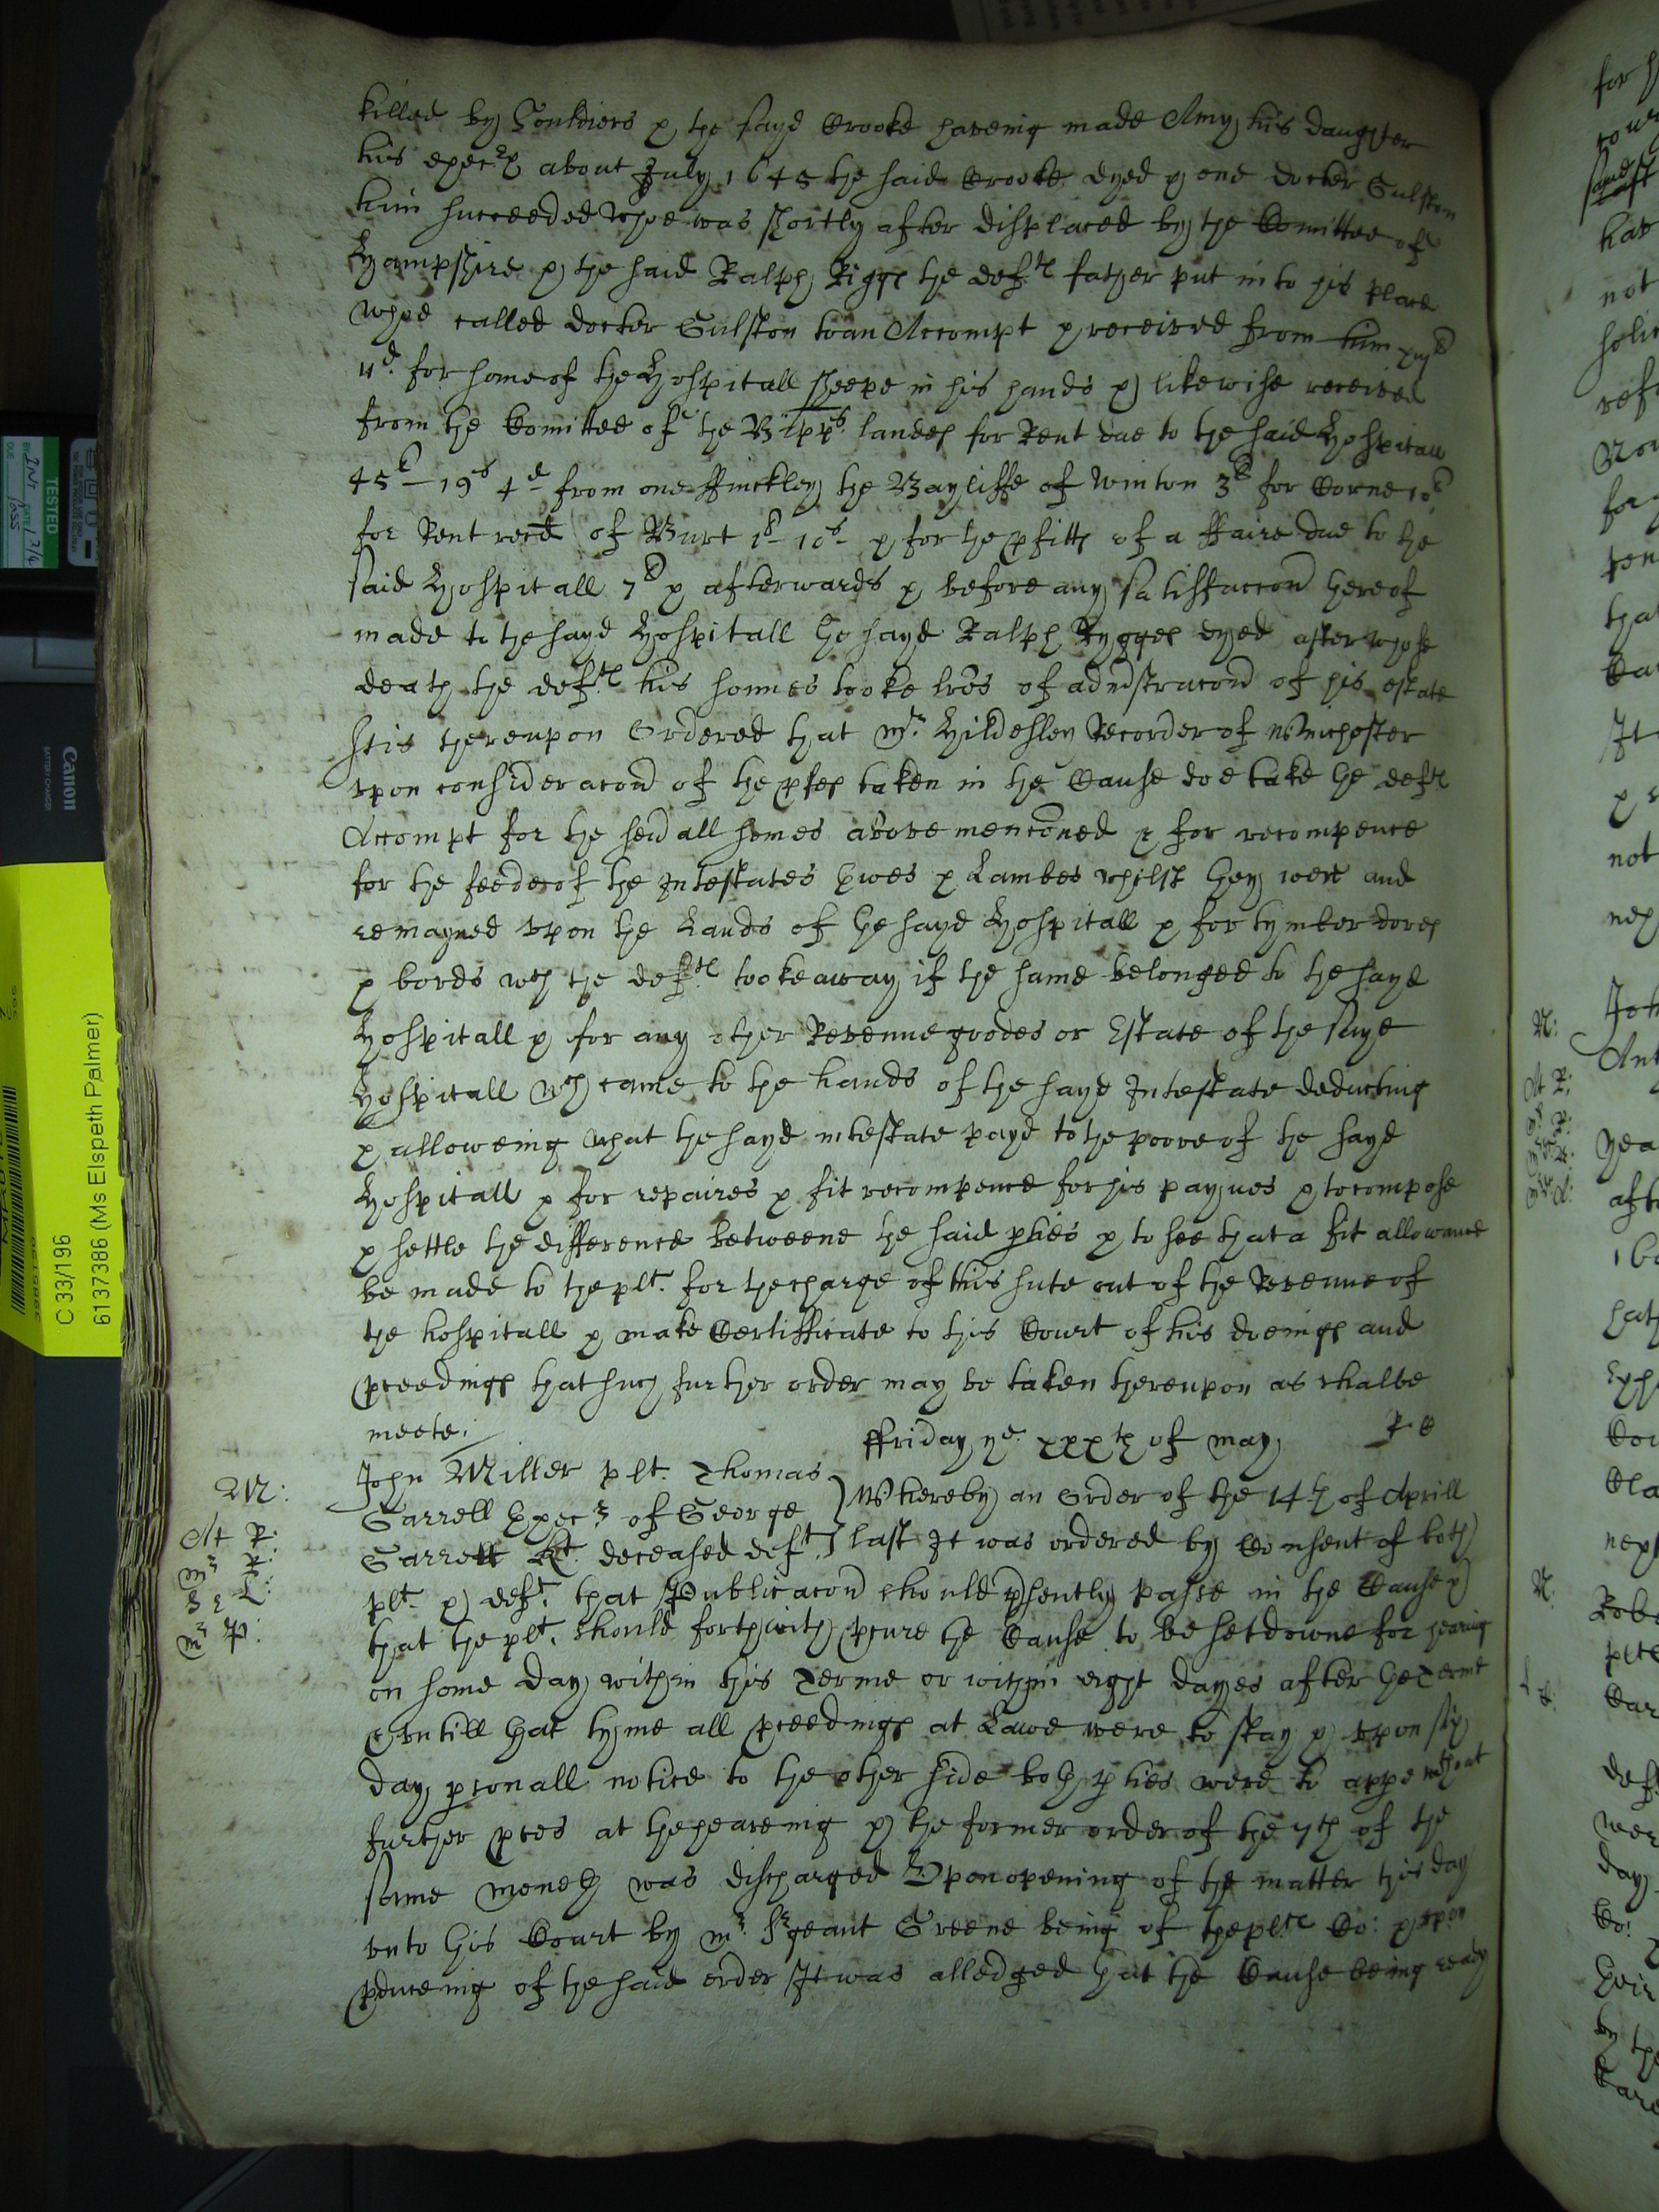 killed by Souldiers & the sayd Crooke haveing made Amy his daughter
his execrx about July 1645 the said Crooke dyed & one docter Gulston
him succeeded whoe was shortly after displaced by the Comittee of
Hampshire & the said Ralph Riggs the deftes father put in to his place
whoe called docter Gulston to an Accompt & received from him
for some of the Hospitall sheepe in his hands & likewise received
from the Comittee of the Bpps landes for Rent due to the said Hospitall
45l 19s 4d from one ffinckley the Bayliffe of Winton 3l for Corne 10s
for Rent recd of Burt 1l 10s & for the pfitts of a ffaire due to the
said Hospitall 7l & afterwards & before any satisfaccon thereof
made to the sayd Hospitall the sayd Ralph Rygges dyed after whose
death the deftes his sonnes tooke lres of admstracon of his estate
Itis thereupon Ordered that Mr. Hildesley Recorder of Winchester
vpon consideracon of the pfes taken in the Cause doe take the deftes
Accompt for the seidall somes above menconed & for recompence
for the feede of the Intestates Ewes & Lambes whilst they went and
remayned vpon the Lands of the sayd Hospitall & for tymber dores
& bords wch the deftes tooke away if the same belonged to the sayd
Hospitall & for any other Revenue goodes or Estate of the sayd
Hospitall wch came to the hands of the sayd Intestate deducting
& alloweing what the sayd intestate payd to the poore of the sayd
Hospitall & for repaires & fit recompence for his paynes & to compose
& settle the difference betweene the said pties & to see that a fit allowance
be made to the plt. for the charge of this suite out of the Revenue of
the hospitall & make Certifficate to this Court of his doeings and
pceedings that such further order may be taken thereupon as shalbe
meete: R C
ffriday ye. xxxth of may
M:
At R:
Mr R:
Mr P:
John Miller plt. Thomas
Garrell Execr of George
Garrett Kt. deceased deft.
Whereby an Order of the 14th of Aprill
last It was ordered by Consent of both
plt. & deft. that Publicacon should psently passe in the Cause &
that the plt. should forthwith pcure the Cause to be set downe for hearing
on some day within this Terme or within eight dayes after the Terme
& vntill that tyme all pceedings at Lawe were to stay & vpon six
day psonall notice to the other side both pties were to appe without
further pces at the heareing & the former order of the 7th of the
same moneth was discharged Vpon opening of the matter this day
vnto this Court by Mr Srgeant Greene being of the pltes Co: & vpon
pduceing of the said order It was alledged that the Cause being ready
TESTED
Canon
C 33/196
6137386 (Ms Elspeth Palmer)